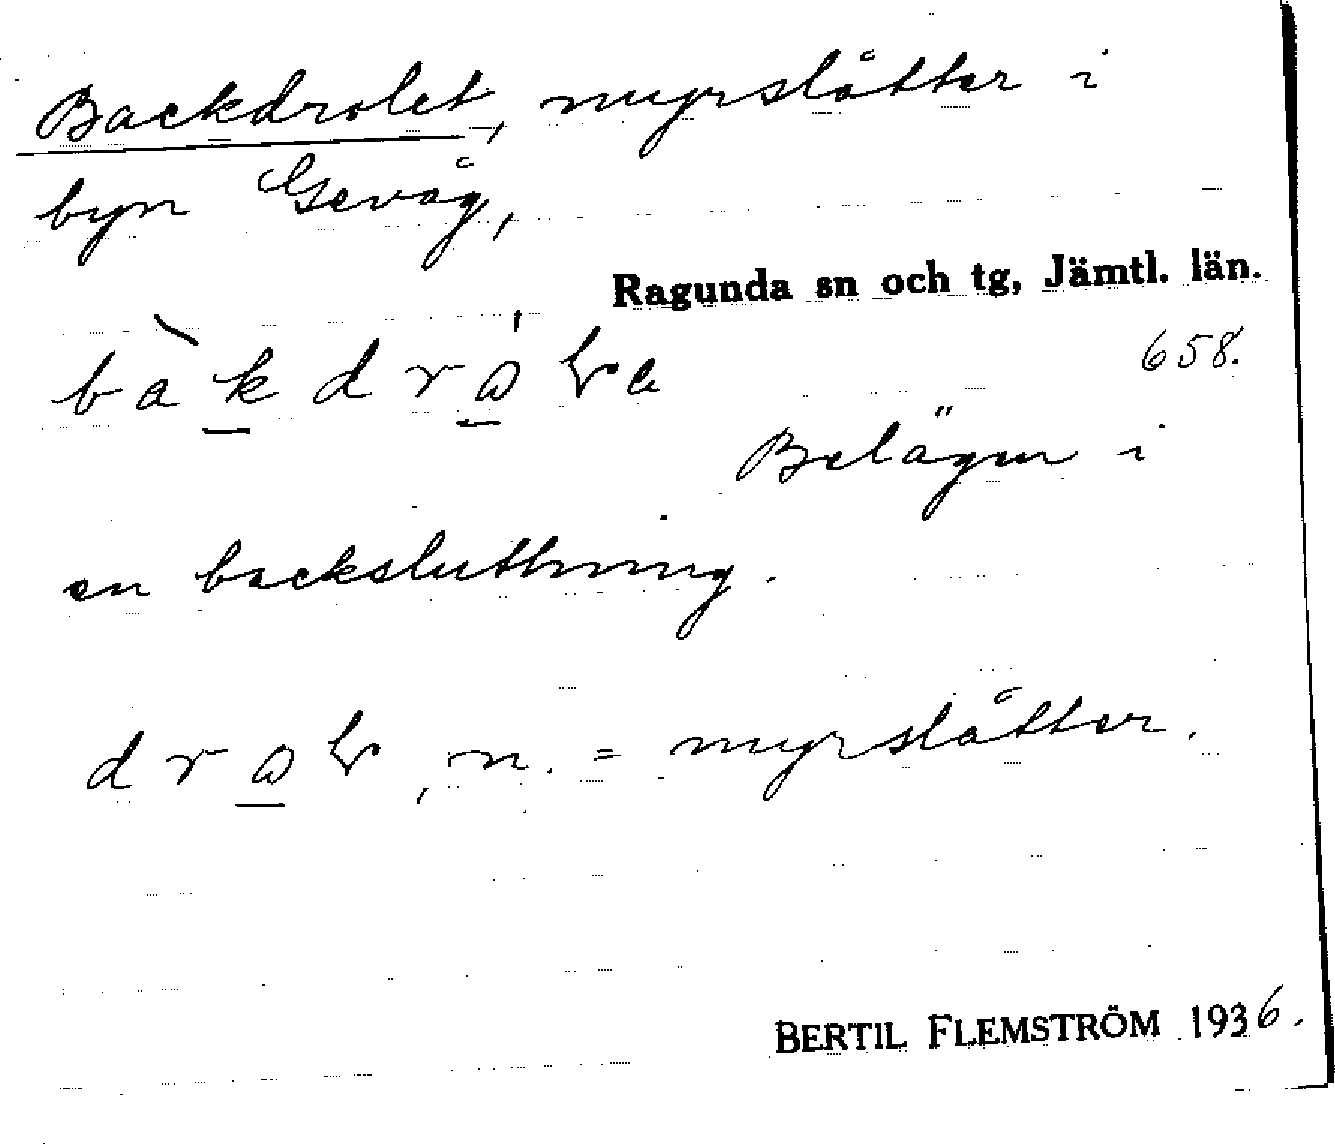 Backdrolet, myrslåtter i
byn Gevåg,
Ragunda sn och tg, Jämtl. län.
658.
Belägen i
en backsluttning.
n. = myrslåtter.
BERTIL FLEMSTRÖM 1936.